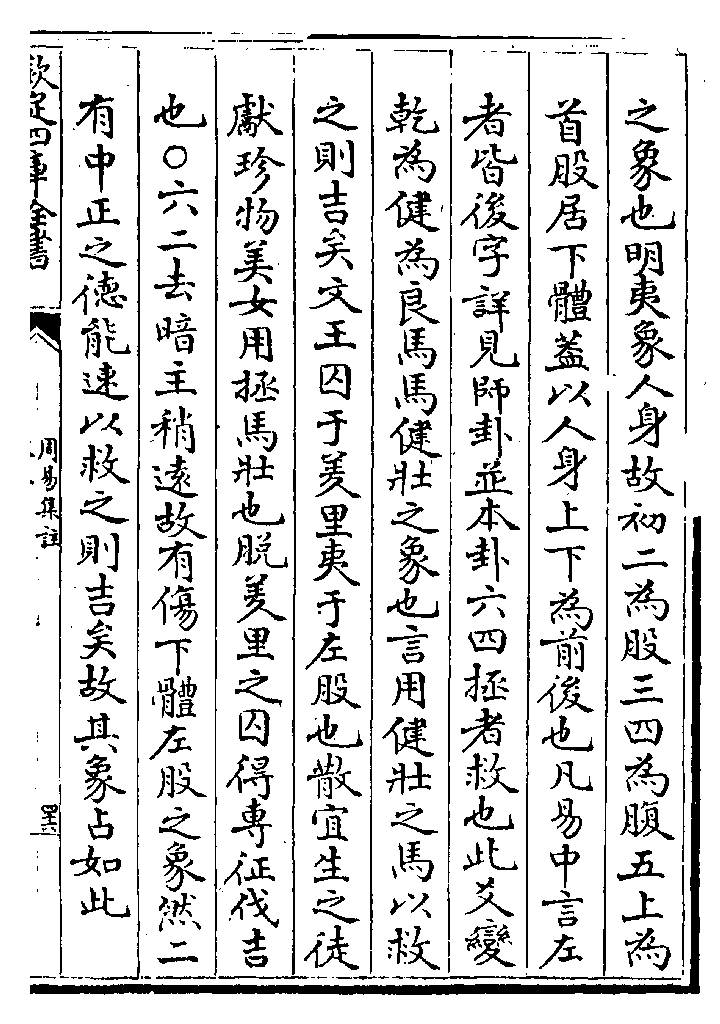 之象也明夷象人身故初二為股三四為腹五上為
首股居下體蓋以人身上下為前後也凡易中言左
者皆後字詳見師卦並本卦六四拯者救也此爻變
乾為健為良馬馬健壯之象也言用健壯之馬以救
之則吉矣文王囚于羑里夷于左股也散宜生之徒
獻珍物美女用拯馬壯也脱羑里之囚得專征伐吉
也○六二去暗主稍遠故有傷下體左股之象然二
有中正之德能速以救之則吉矣故其象占如此
欽定四庫全書
周易集註